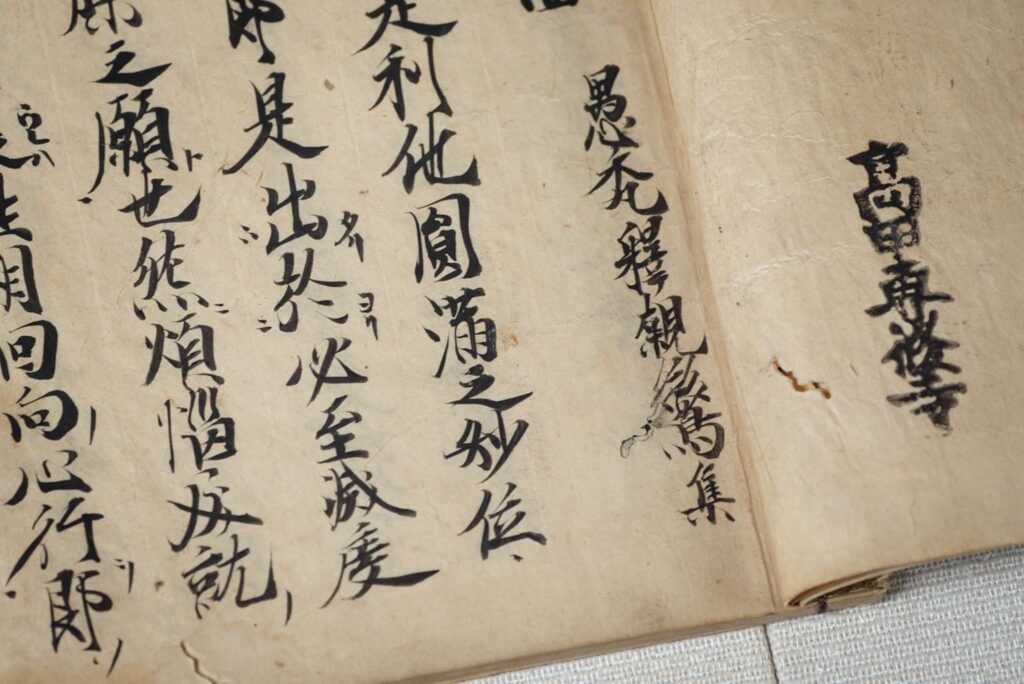 高田専修寺
愚禿釋親鸞集
是利他圓滿之妙位
即是出於必至滅度
之願也然煩惱成就
相回向心行即